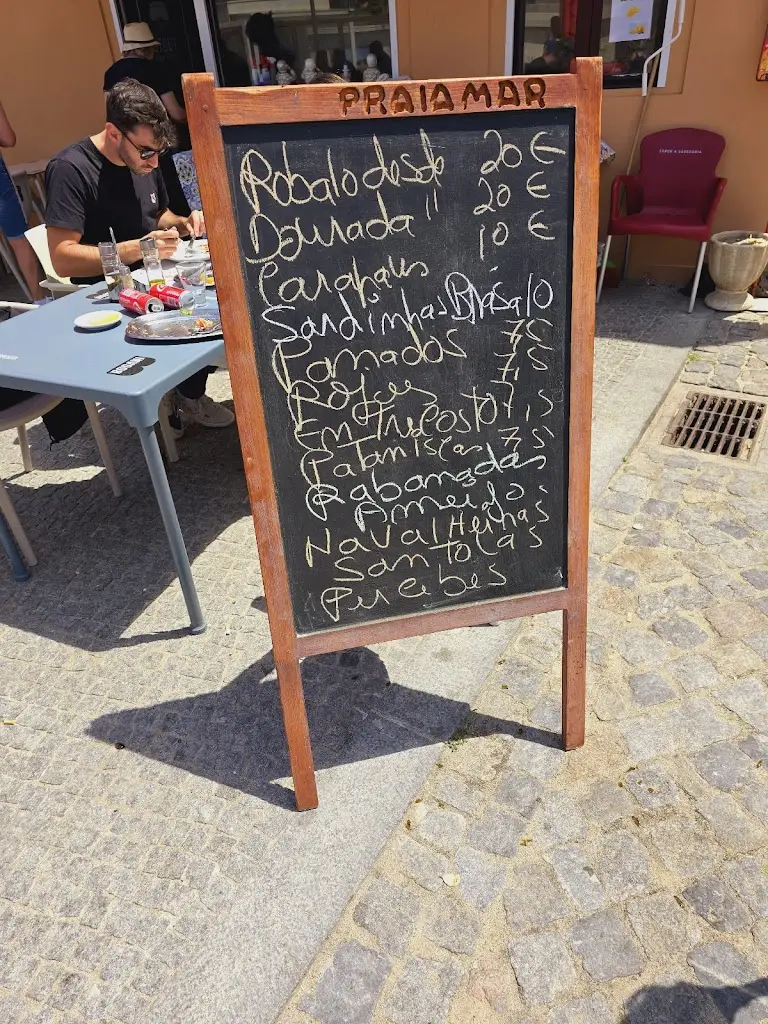 PRAIAMAR
Robalo desde 20 €
Dourada " 20 €
Carapaus 10 €
Sardinhas Brasa 10
Panados 7 €
Rojões 7,5
Entrecosto 7,5
Pataniscas 7,5
Rabanadas
Ameijo
Navalheiras
Santolas
Percebes